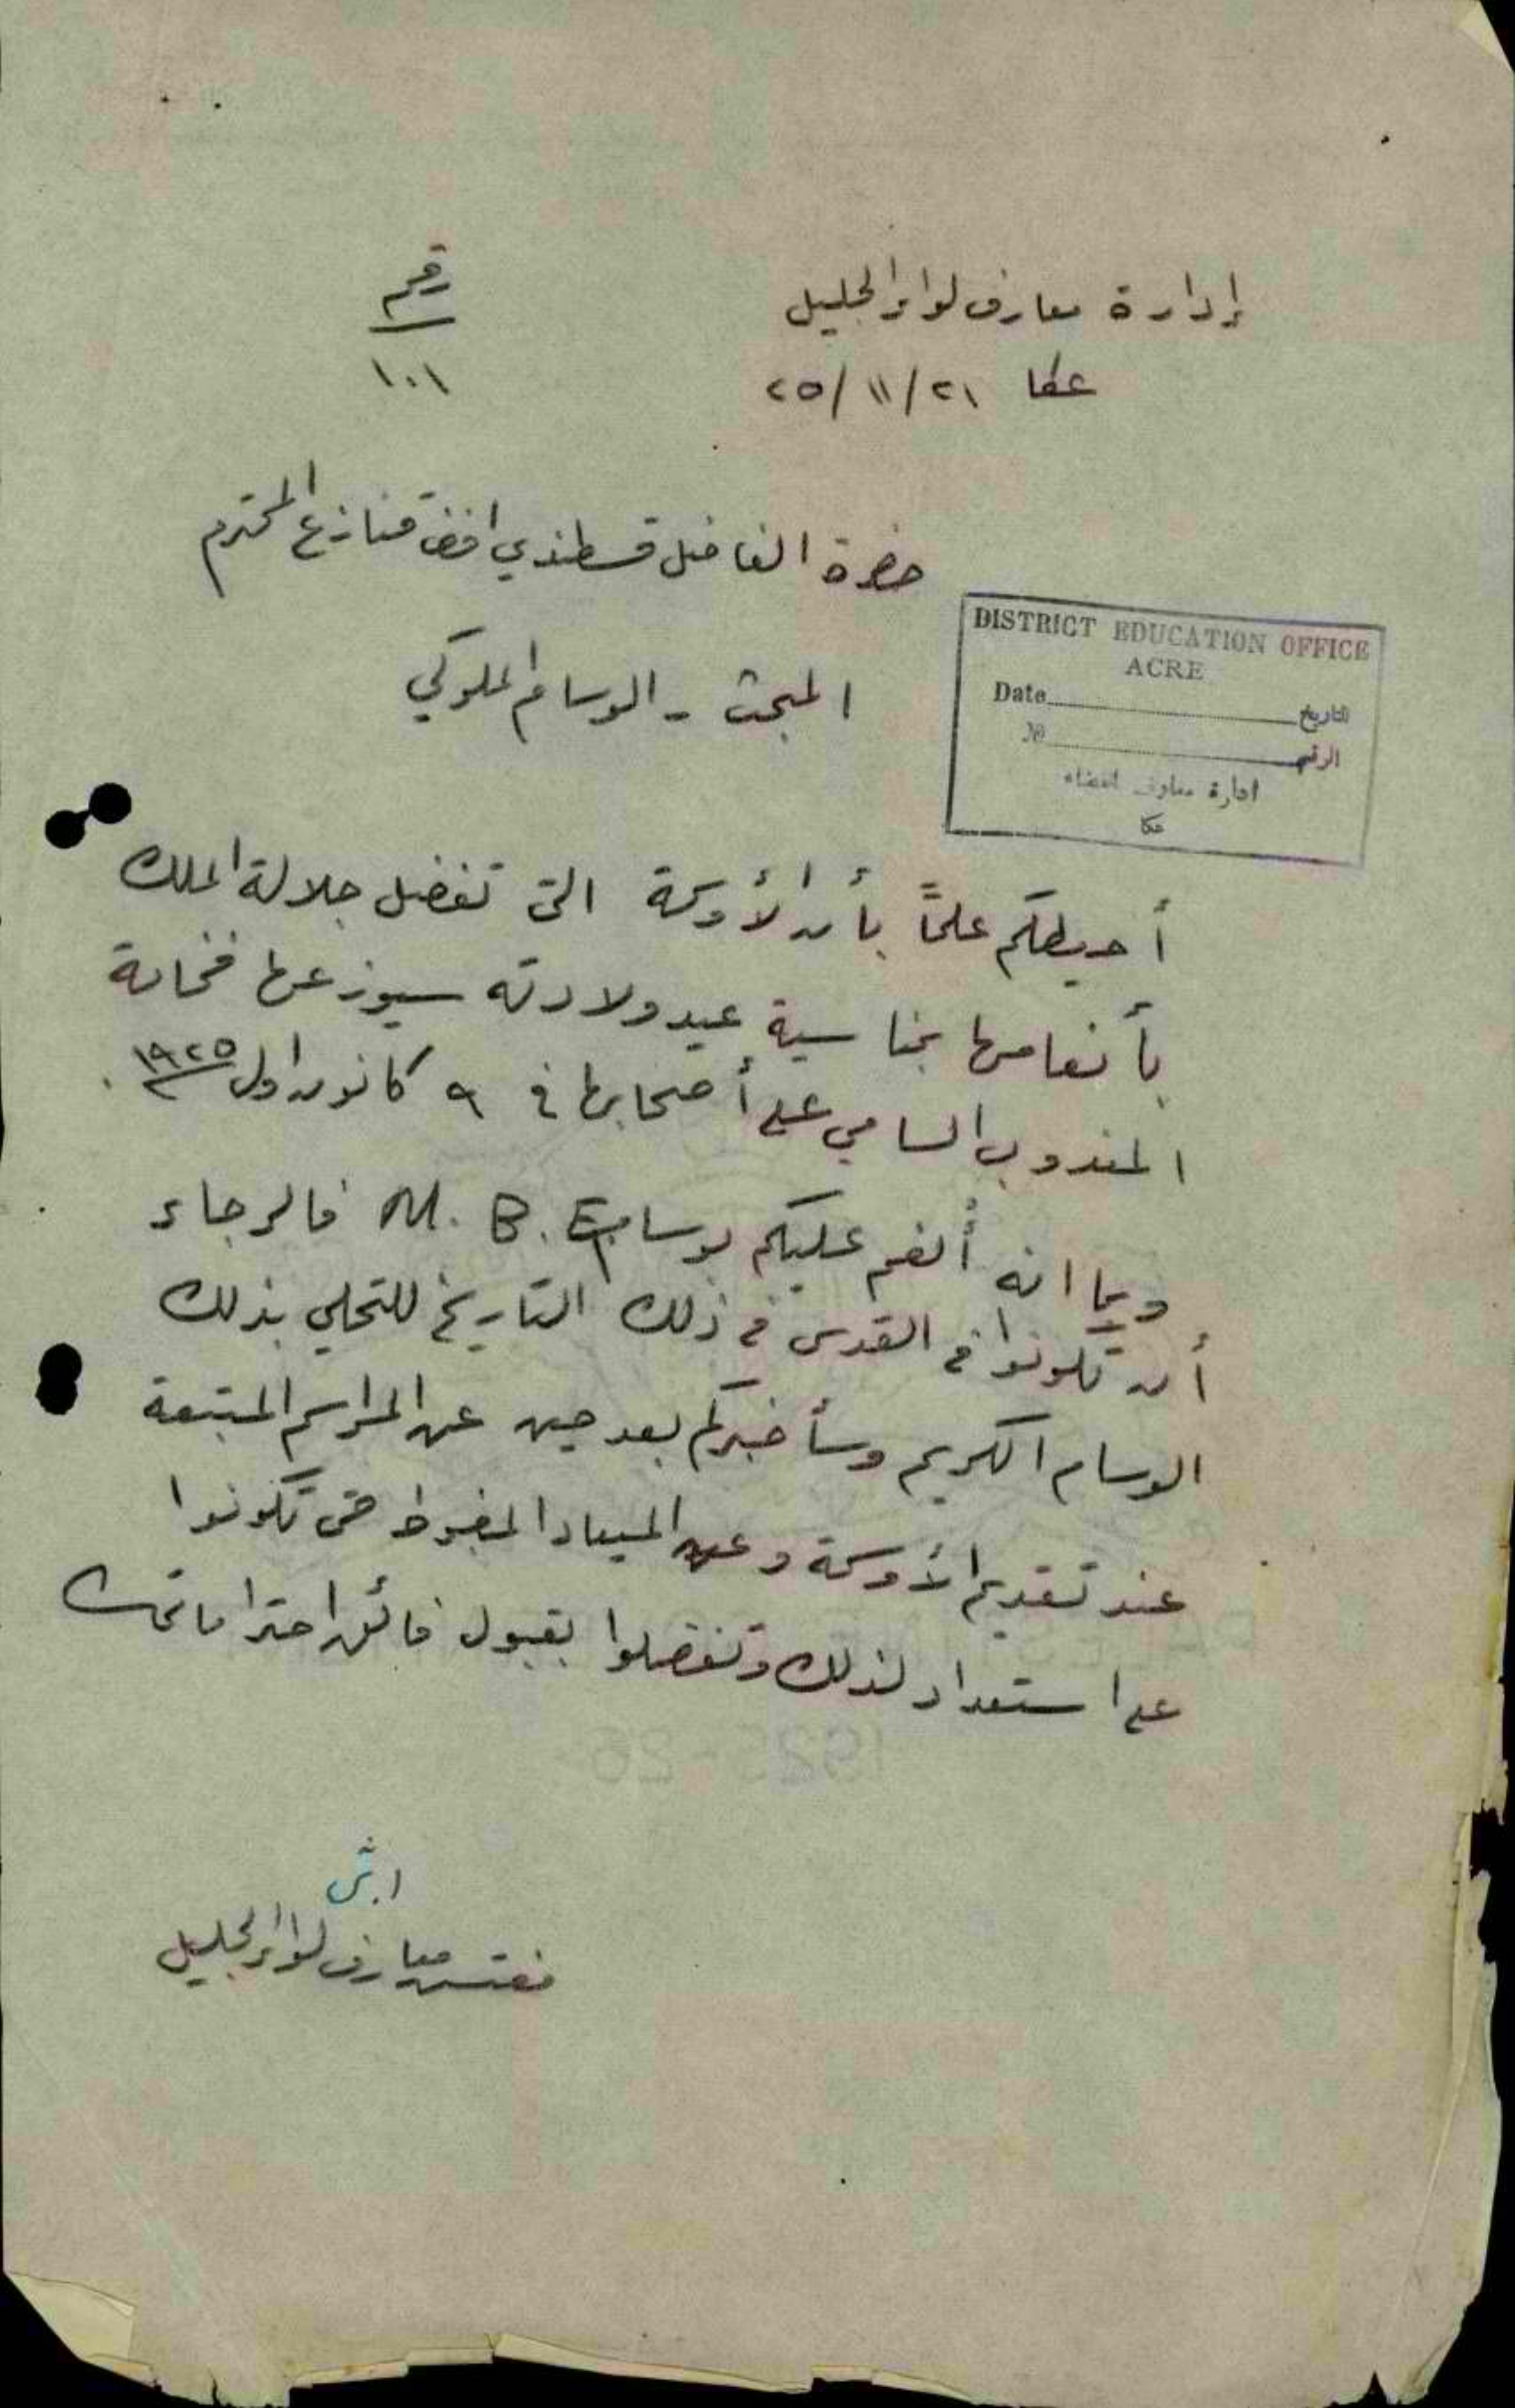 إدارة معارف لواء الجليل
رقم
عكا ٢١/١١/٢٥
١٠١
حضرة الفاضل قسطندي افندي قنازع المحترم
DISTRICT EDUCATION OFFICE
ACRE
Date التاريخ
№ الرقم
ادارة معارف القضاء
عكا
المبحث - الوسام الملوكي
أحيطكم علماً بأن الأوسمة التي تفضل جلالة الملك
بأنعامها بمناسبة عيد ولادته سيوزعها فخامة
المندوب السامي على أصحابها في ٩ كانون اول ١٩٢٥.
وبما انه أُنعم عليكم بوسام M. B. E فالرجاء
أن تكونوا في القدس في ذلك التاريخ للتحلي بذلك
الوسام الكريم وسأخبركم بعد حين عن المراسم المتبعة
عند تقديم الأوسمة وعن الميعاد المضبوط حتى تكونوا
على استعداد لذلك وتفضلوا بقبول فائق احتراماتي
1925-26
مفتش معارف لواء الجليل